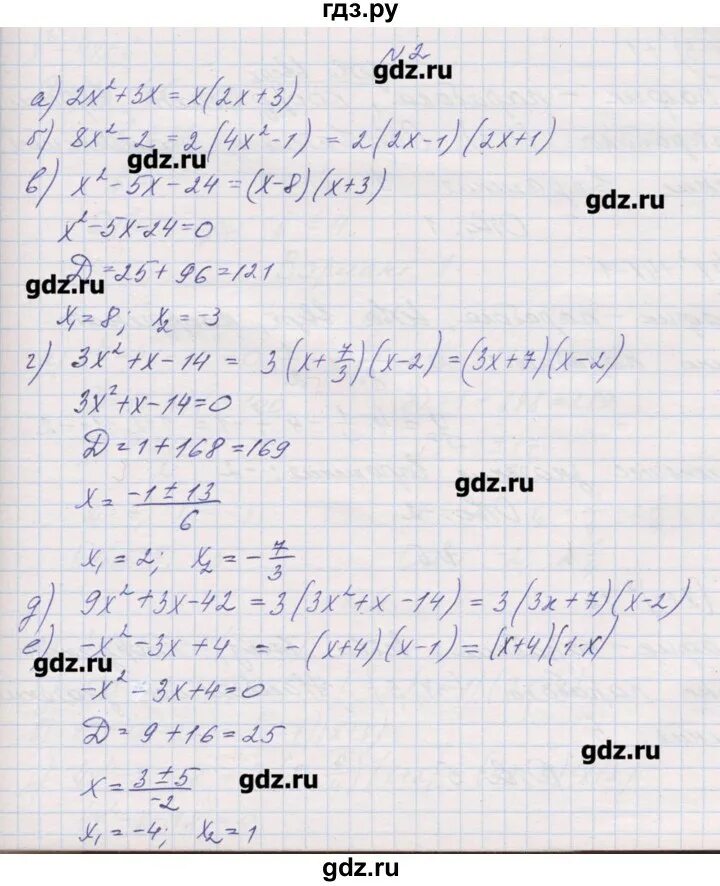 гдз.ру
№2
gdz.ru
а) 2x² + 3x = x(2x+3)
б) 8x² - 2 = 2(4x² - 1) = 2(2x-1)(2x+1)
gdz.ru
в) x² - 5x - 24 = (x-8)(x+3)
gdz.ru
x² - 5x - 24 = 0
D = 25 + 96 = 121
gdz.ru
x₁ = 8; x₂ = -3
г) 3x² + x - 14 = 3(x + 7/3)(x-2) = (3x+7)(x-2)
3x² + x - 14 = 0
D = 1 + 168 = 169
gdz.ru
x = (-1 ± 13)/6
x₁ = 2; x₂ = -7/3
д) 9x² + 3x - 42 = 3(3x² + x - 14) = 3(3x+7)(x-2)
е) -x² - 3x + 4 = -(x+4)(x-1) = (x+4)(1-x)
gdz.ru
-x² - 3x + 4 = 0
D = 9 + 16 = 25
gdz.ru
x = (3 ± 5)/-2
gdz.ru
x₁ = -4; x₂ = 1
gdz.ru